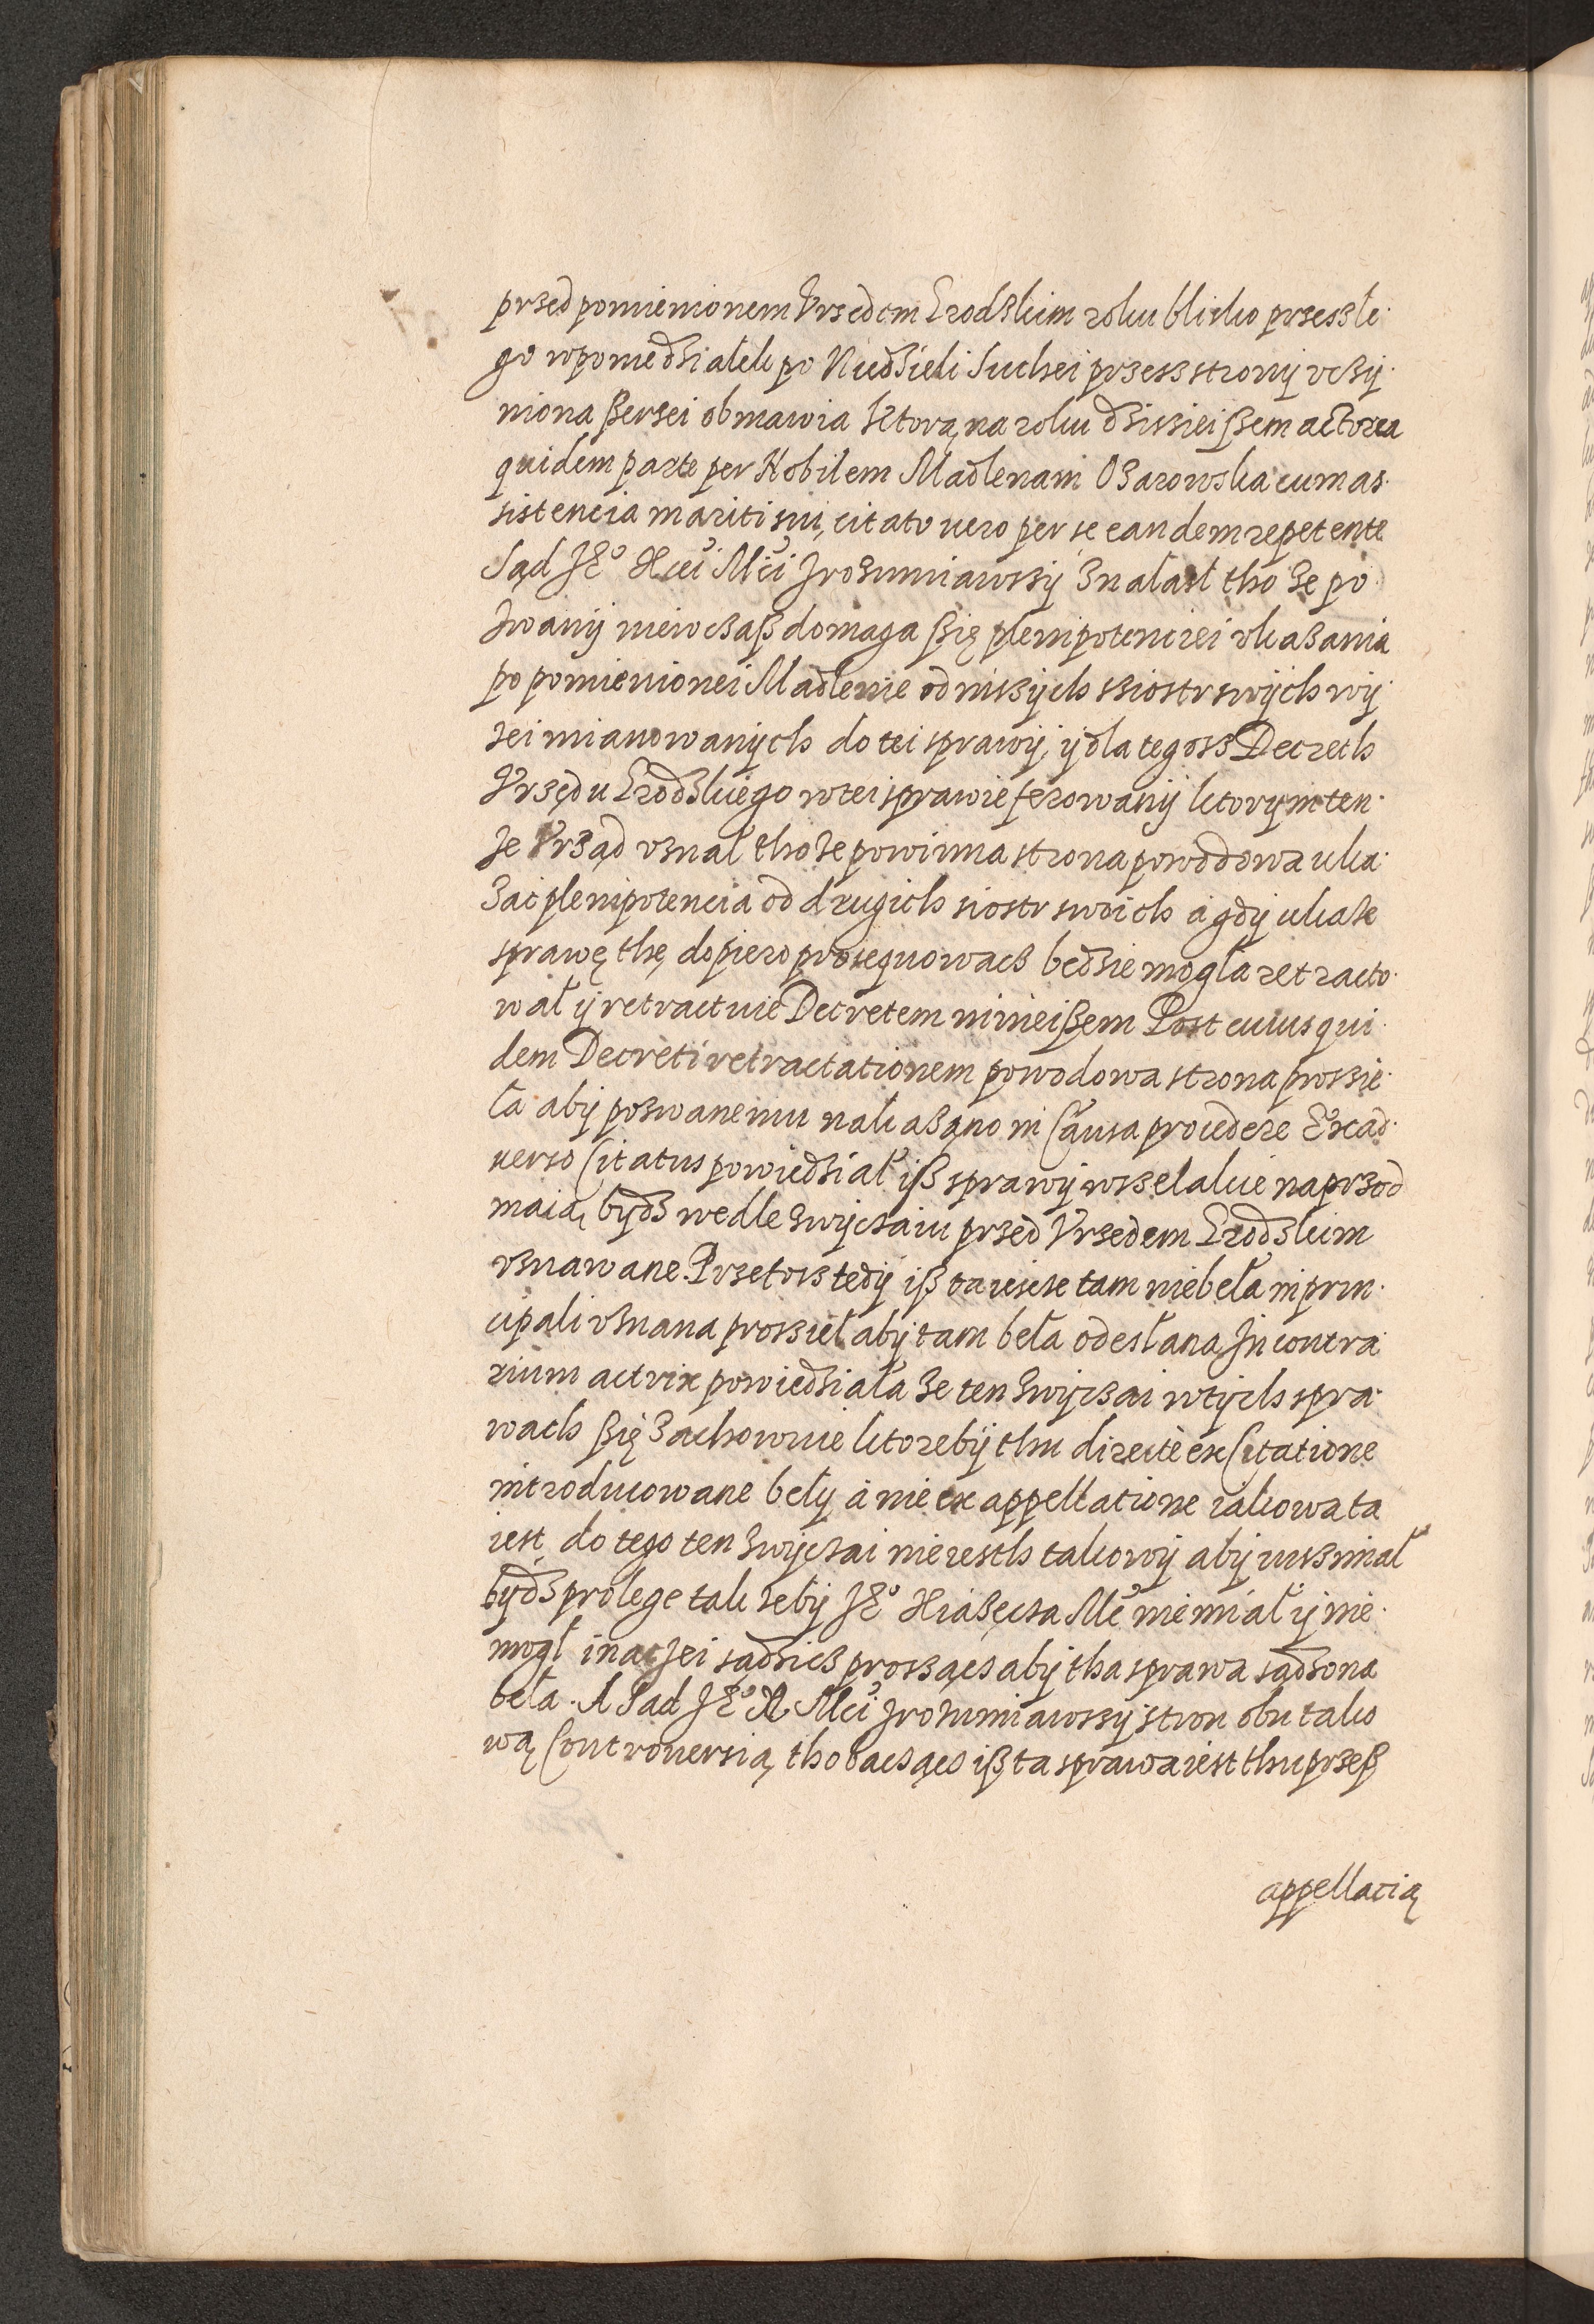 przed pomienionem Vrzedem Grodzkim roku blisko przesżle·
go wponiedzialek po Niedzieli Suchei przess strony vczÿ·
niona szerzei obmawia którą na roku dzisieiszem actorea
quidem parte per Nobilem Madlenam Ozarowska cum as·
sistencia mariti sui, citato vero per se eandem repetente
Sąd JE° Xcei Mci zrozumiawszÿ znalasl tho że po·
zwanÿ niewczasz domaga szię plenipotenciei vkazania
po pomienionei Madlenie od inszÿch ssiostr swÿch wÿ·
zei mianowanÿch do tei sprawÿ, ÿ dla tegosz Decreth
Vrzędu Grodzkiego wtei sprawie ferowanÿ ktorym ten·
ze Vrząd vznał tho że powinna strona powodowa uka·
zac plenipotencia od drugich siostr swoich a gdÿ ukaże
sprawę thę dopiero prosequowacz będzie mogła retracto·
wał ÿ retractuie Decretem ninieiszem Post cuius qui·
dem Decreti retractationem powodowa strona prossie·
ła abÿ pozwanemu nakazano in Causa procedere Ex ad·
uerso Citatus powiedział isz sprawÿ wszelakie naprzod
maią bydz wedle zwÿczaiu przed Vrzedem Grodzkim
vznawane. Przetosz tedÿ isz ta ieszcze tam niebeła in prin·
cipali vznana prossieł abÿ tam beła odesłana In contra·
rium actrix powiedziała że ten zwÿczai wtÿch spra·
wach szię zachowuie ktorebÿ thu directe ex Citatione
introducowane belÿ a nie ex appellatione iakowa ta
iest, do tego ten zwÿczai nie iesth takowÿ abÿ iusz miał
bydz pro lege tak żebÿ JE° Xiążęcza Mc nie miał ÿ nie·
mogł inaczei sądzicz proszącz abÿ tha sprawa sądzona
beła. A Sad JE° X Mci zrozumiawszÿ stron obu tako
wą Controuersią, tho baczącz isz ta sprawa iest thu przesz
appellacią